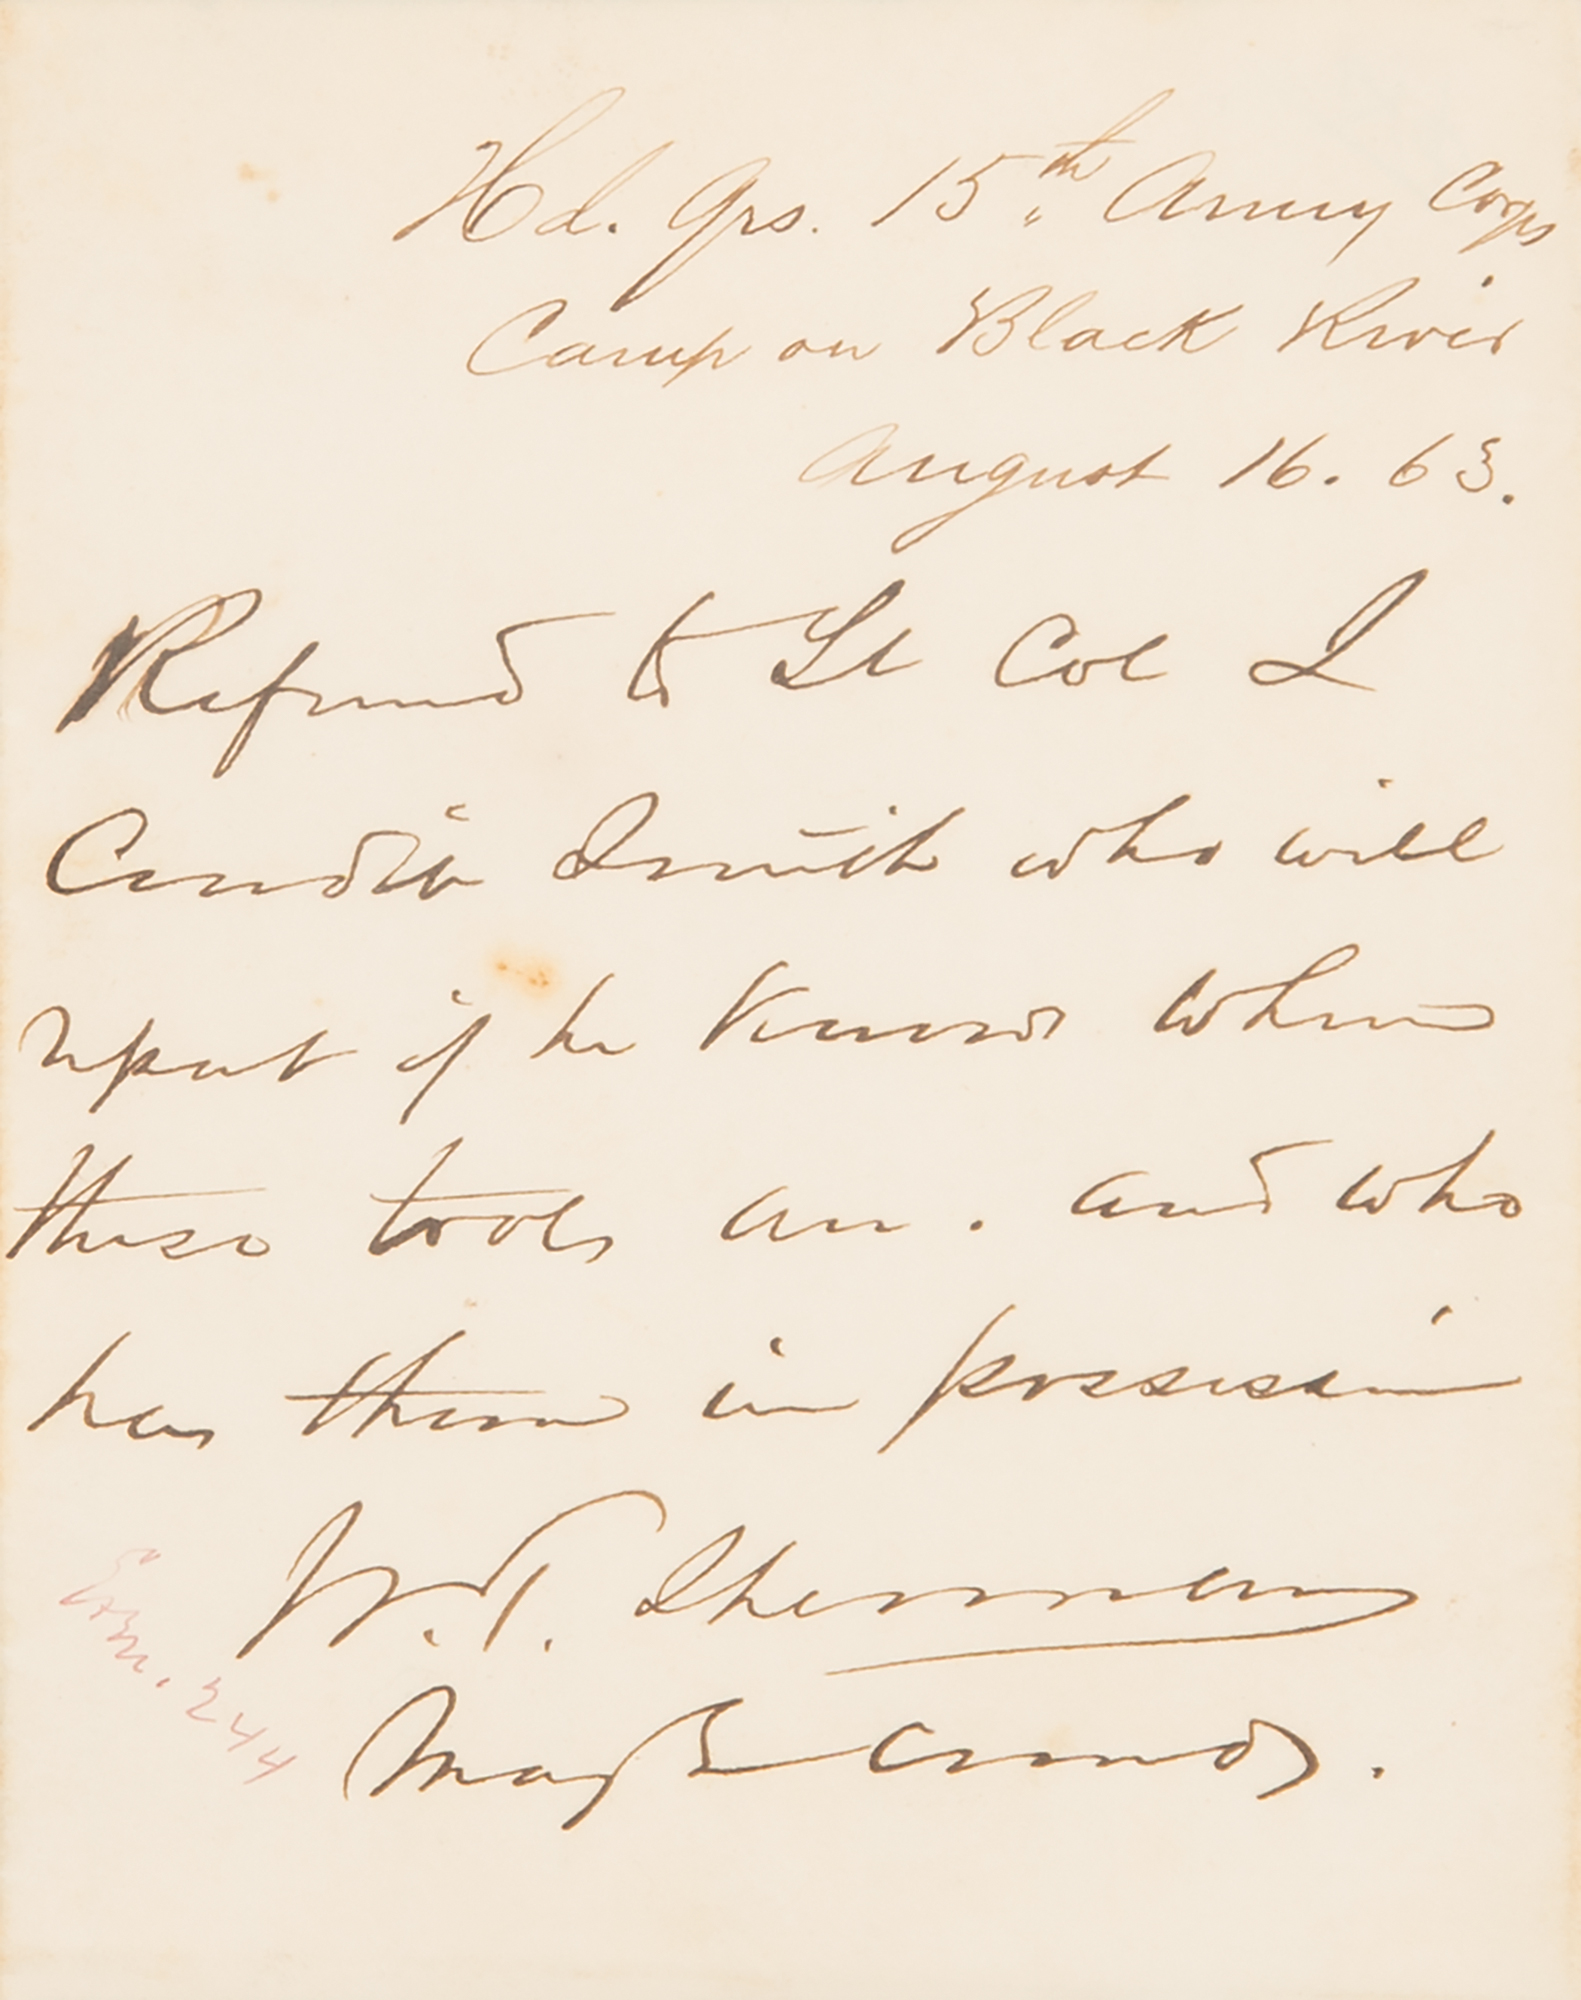 Hd. Qrs. 15th Army Corps
Camp on Black River
August 16. 63.
Referred to Lt Col J
Condit Smith who will
report if he knows where
these tools are. and who
has them in possession
W. T. Sherman
Maj Genl Comdg.
244